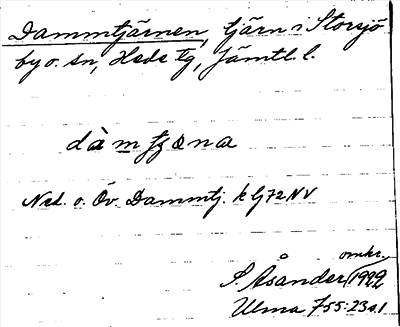 Dammtjärnen, tjärn i Storsjö
by o. sn, Hede tg, Jämtl. l.
Ned. o. Öv. Dammtj. k bj 72 NV
omkr.
S. Åsander 1922
Ulma 755:23 s.1